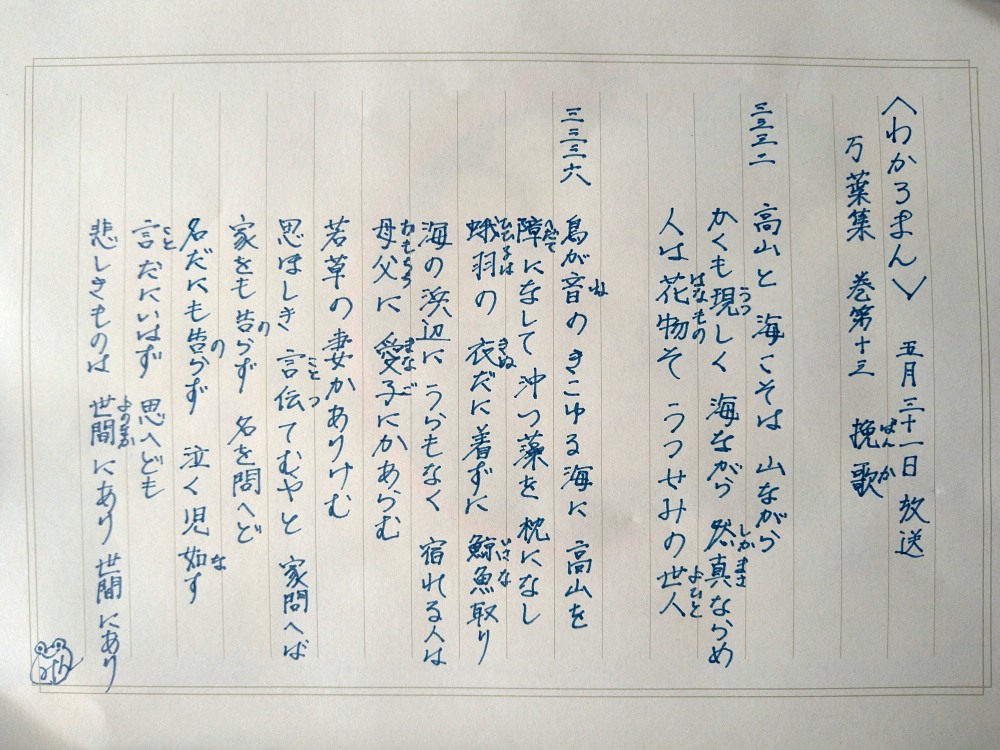 〈わかろまん〉 五月三十一日放送
万葉集 巻第十三 挽歌
ばんか
三三三二 高山と 海こそは 山ながら
かくも現しく 海ながら 然真ならめ
うつ しかまさ
人は花物そ うつせみの世人
はなもの よひと
三三三六 鳥が音の きこゆる海に 高山を
ね
障になして 沖つ藻を 枕になし
へだて
蛾羽の 衣だに着ずに 鯨魚取り
ひむしは きぬ いさな
海の浜辺に うらもなく 宿れる人は
母父に 愛子にかあらむ
おもちち まなご
若草の 妻かありけむ
思ほしき 言伝てむやと 家問へば
ことつ
家をも告らず 名を問へど
の
名だにも告らず 泣く児如す
の な
言だにいはず 思へども
こと
悲しきものは 世間にあり 世間にあり
よのなか